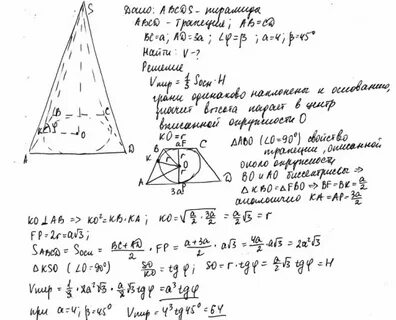 Дано: ABCDS - пирамида
ABCD - трапеция; AB=CD
BC=a; AD=3a; ∠φ=β; a=4; β=45°
Найти: V-?
Решение
Vпир=1/3 Sосн·H
грани одинаково наклонены к основанию,
значит высота падает в центр
вписанной окружности O
KO=r
ΔABO (∠O=90°) свойство
трапеции, описанной
около окружности
BO и AO биссектрисы ⇒
ΔKBO=ΔFBO ⇒ BF=BK=a/2
аналогично KA=AP=3a/2
S
B
C
K
φ
O
A
D
B
aF
C
K
r
O
r
A
3a
P
D
KO⊥AB ⇒ KO²=KB·KA; KO=√(a/2·3a/2)=a/2√3=r
FP=2r=a√3;
SABCD=Sосн=(BC+AD)/2·FP=(a+3a)/2·a√3=4a/2 a√3=2a²√3
ΔKSO (∠O=90°) SO/KO=tgφ; SO=r·tgφ=a/2√3 tgφ=H
Vпир=1/3·2a²√3·a/2√3 tgφ=a³tgφ
при a=4; β=45° Vпир=4³tg45°=64